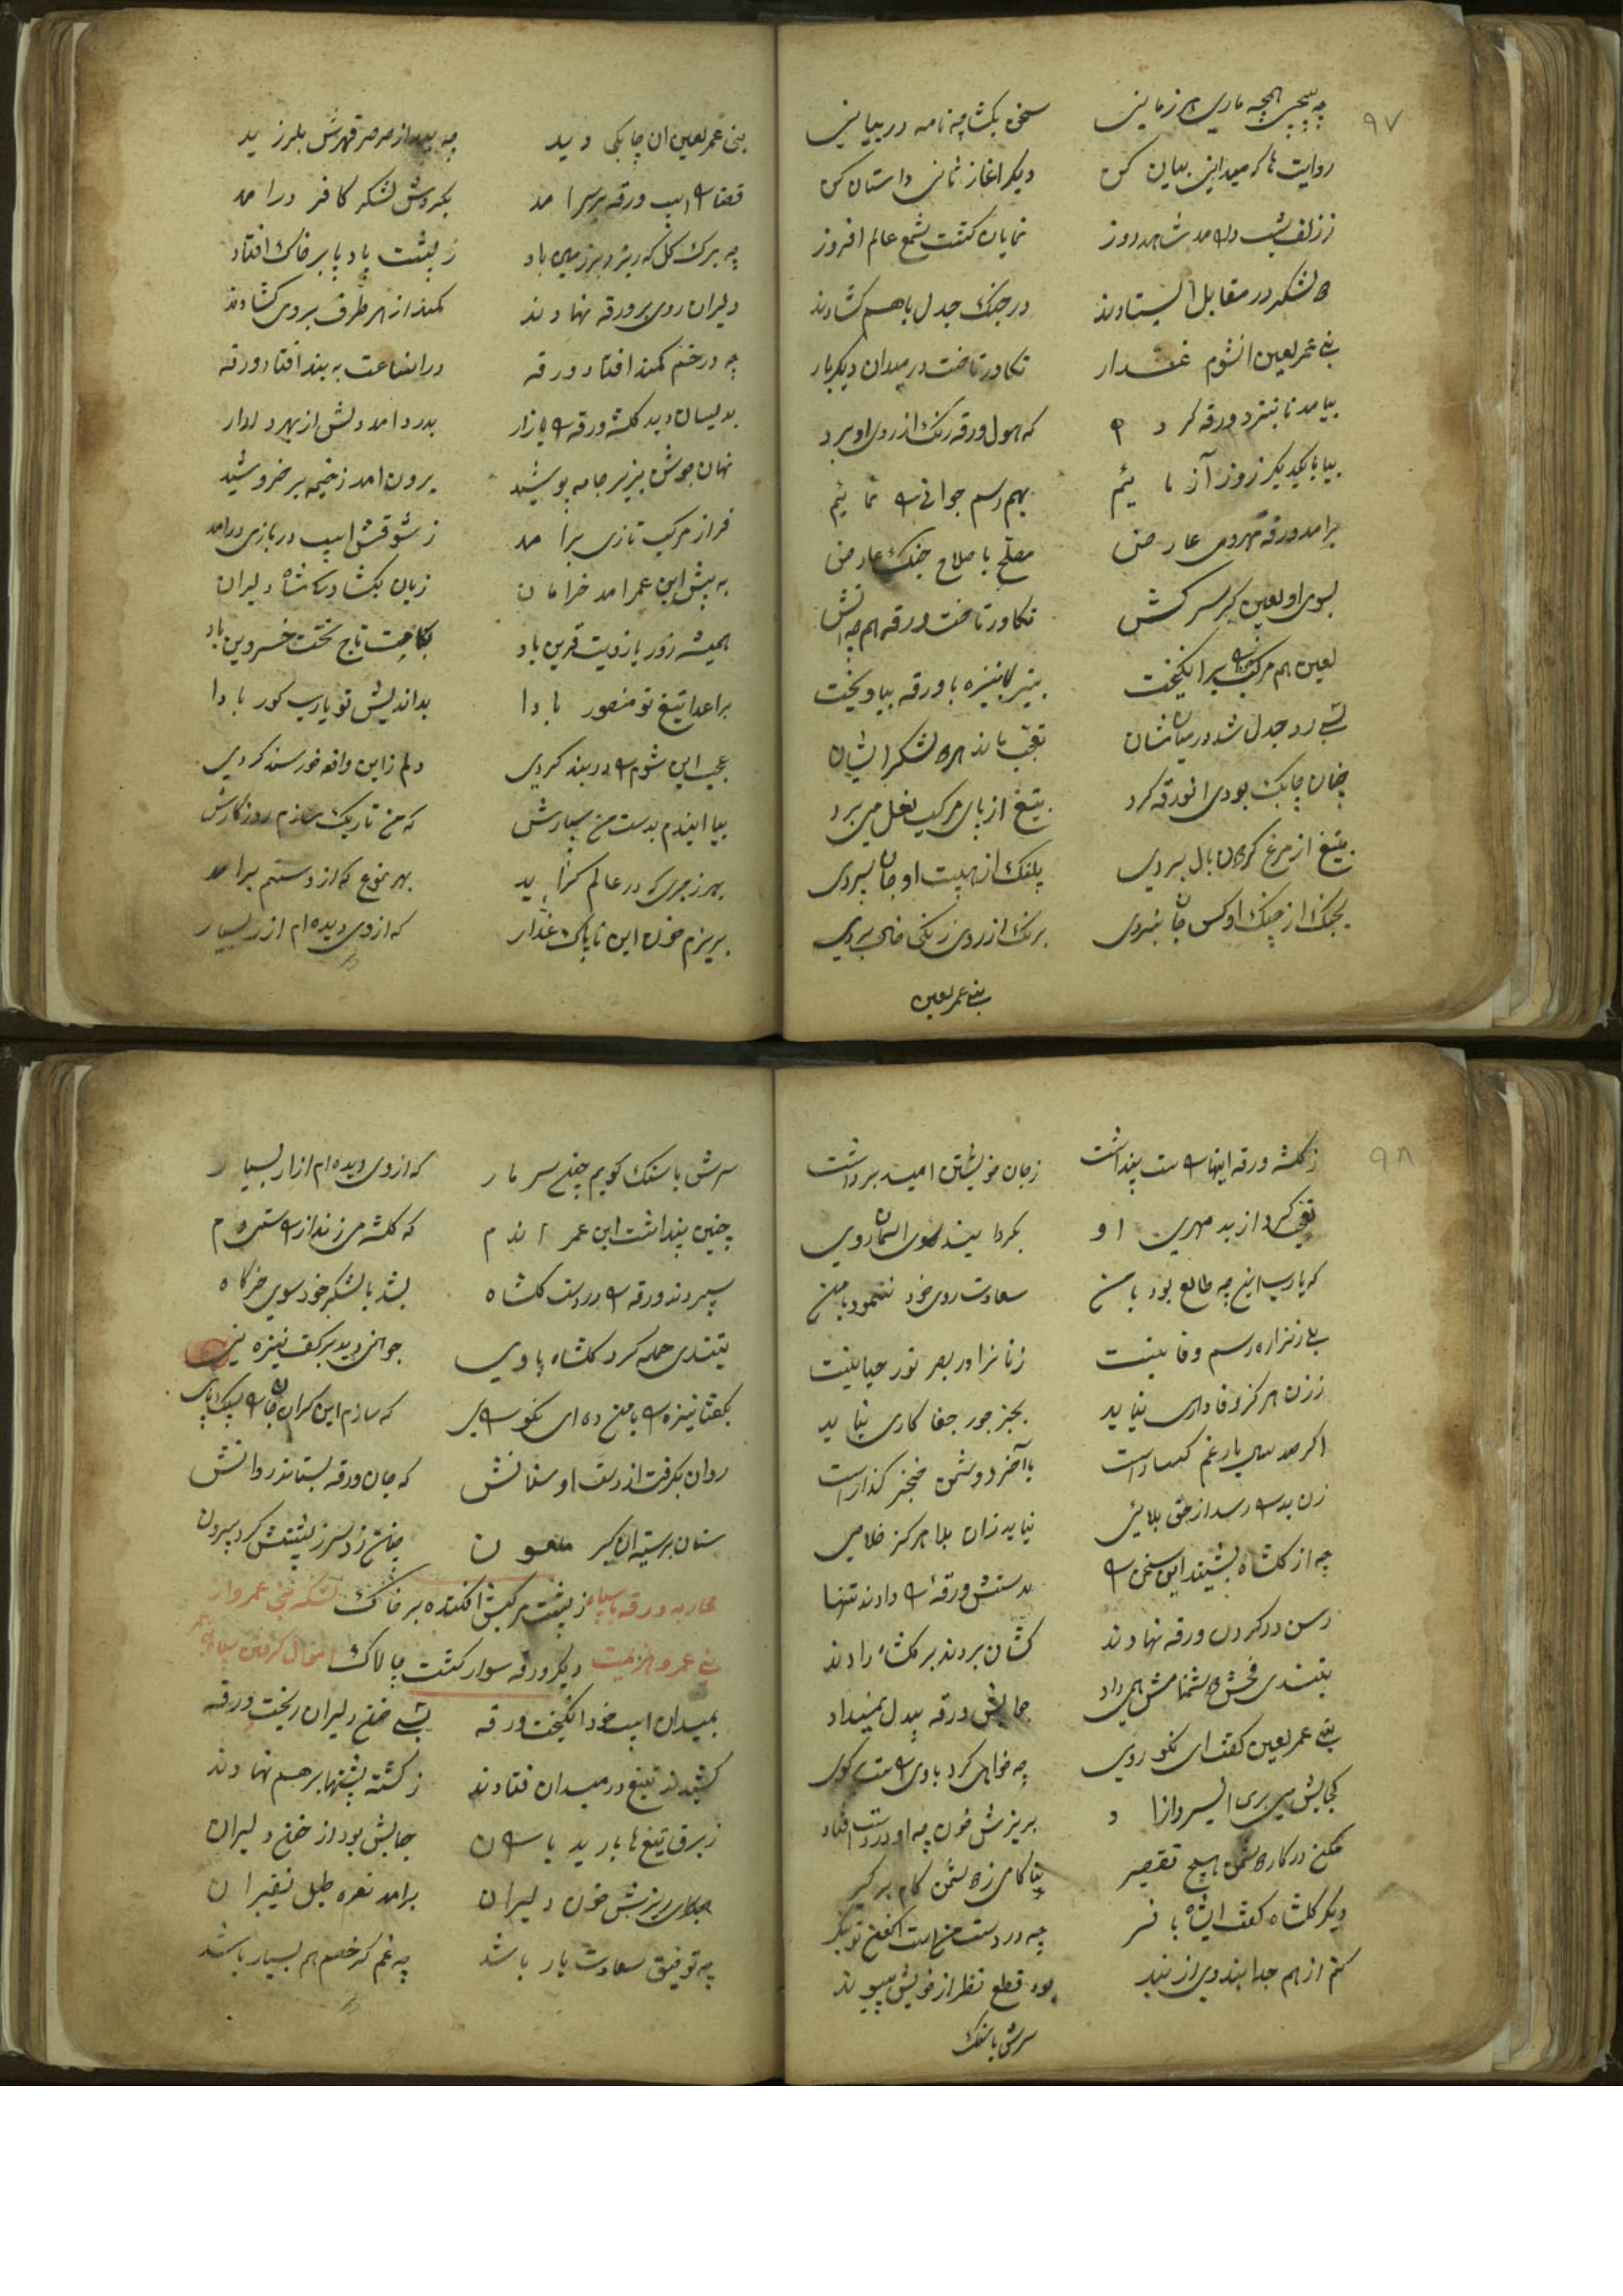 ۹۷
چه پیچی همچه ماری هر زمانی سخن بکشا چه نامه در بیانی
روایت ها که میدانی بیان کن دیگر اغاز ثانی داستان کن
ز زلف شب درامد شاهد روز نمایان گشت شمع عالم افروز
لشکر در مقابل ایستادند در جنگ جدل باهم گشادند
بنی عمر لعین انشوم غدار تکاور تاخت در میدان دیگربار
بیامد تا نبرد ورقه که هول ورقه رنگ از روی او برد
بیا با یکدیگر زور آزمائیم بهم رسم جوانی نمائیم
برامد ورقه عارض مصلح با صلاح جنگ عارض
بسوی او لعین گبر سرکش تکاور تاخت ورقه هم چه اتش
لعین هم مرکب برانگیخت نیزه با ورقه بیاویخت
بسی رد جدل شد در میانشان تعجب ماند لشکر ایشان
چنان چابک بودی انورقه کرد بتیغ از پای مرکب نعل می برد
بتیغ از مرغ بال بردی پلنگ از هیبت او جان سپردی
بجنگ از چنگ او کس جان نبردی برنگ از روی زنگی خال بردی
بنی عمر لعین
بنی عمر لعین ان چابکی دید چه بید از صرصر قهرش بلرزید
قضا اسب ورقه برسر امد بکردش لشکر کافر درامد
چه برک گل که ریزد بر زمین باد ز پشت باد پا بر خاک افتاد
دلیران روی بر ورقه نهادند کمند از هر طرف بروی گشادند
چه در خم کمند افتاد ورقه در انساعت به بند افتاد ورقه
بدیسان دید گلشه ورقه زار بدرد امد دلش از بهر دلدار
نهان جوش بزیر جامه پوشید برون امد ز خیمه بر خروشید
فراز مرکب تازی برامد ز شوقش اسب در بازی درامد
به پیش ابن عمر امد خرامان زبان بگشاد کشاه دلیران
همیشه زور بازویت قرین باد بکامت تاج تخت خسروین باد
بر اعدا تیغ تو منصور بادا بداندیش تو یارب کور بادا
عجب این شوم در بند کردی دلم زاین واقعه خورسند کردی
بیا ایندم بدست من سپارش که من تاریک سازم روزگارش
بهر زجری که در عالم گراید بهر نوع که از دستم برامد
بریزم خون این ناپاک غدار که از وی دیده ام ازار بسیار
۹۸
ز گلشه ورقه اینها پنداشت ز جان خویشتن امید برداشت
تعجب کرد از بد مهری او بکردانید سوی اسمان روی
که یارب این چه طالع بود با من سعادت روی خود ننمود با من
بلی زنرا ره رسم وفا نیست زنانرا در بصر نور حیا نیست
ز زن هرگز وفاداری نیاید بجز جور جفا کاری نیاید
اگر صد سال یار غم گسارست باآخر دوشمن خنجر گذارست
زن بد رسد از حق بلائی نیاید زان بلا هرگز خلاصی
چه از گلشاه بشنید این سخن بدستش ورقه دادند تنها
رسن در گردن ورقه نهادند کشان بردند بر گلشه دادند
بتندی فحش دشنامش می داد جمالش ورقه دل نمیداد
بنی عمر لعین گفت ای نکو روی چه خواهی کرد با وی گوی
کجایش می بری بریزش خون چه او در دست افتاد
مکن در کار هیچ تقصیر کام بر گیر
دیگر گلشاه گفت ایشاه با فر چه در دست منست اکنون تو بنگر
کنم از هم جدا بندوی از بند بود قطع نظر از خویش پیوند
سرش با سنک
سرش با سنک کوبم چون سر مار که از وی دیده ام ازار بسیار
چنین پنداشت ابن عمر اندم که گلشه می زند از ستیزه دم
سپردند ورقه در دست گلشاه بشد با لشکر خود سوی خرگاه
بتندی حمله کرد گلشاه با وی جوانی دید بر کف نیزه نی
بگفتا نیزه با من ده ای نکو که سازم این گران
روان بگرفت از دست او سنانش که جان ورقه بستاند روانش
سنان بر سینه ان گبر ملعون چنان زد سر ز پشتش کرد بیرون
محاربه ورقه با سپاه ز پشت مرکبش افکنده بر خاک لشکر بنی عمر واز
بنی عمر و هزیمت دیگر ورقه سوار گشت چالاک اموال گرفتن سپاه
بمیدان اسب خود انگیخت ورقه بسی خون دلیران ریخت ورقه
کشیدند تیغ در میدان فتادند ز کشته پشتها بر هم نهادند
ز برق تیغ ها بارید باران حبابش بود از خون دلیران
ریزش خون دلیران برامد نعره طبل نفیران
چه توفیق سعادت یار باشد چه غم گر خصم هم بسیار باشد